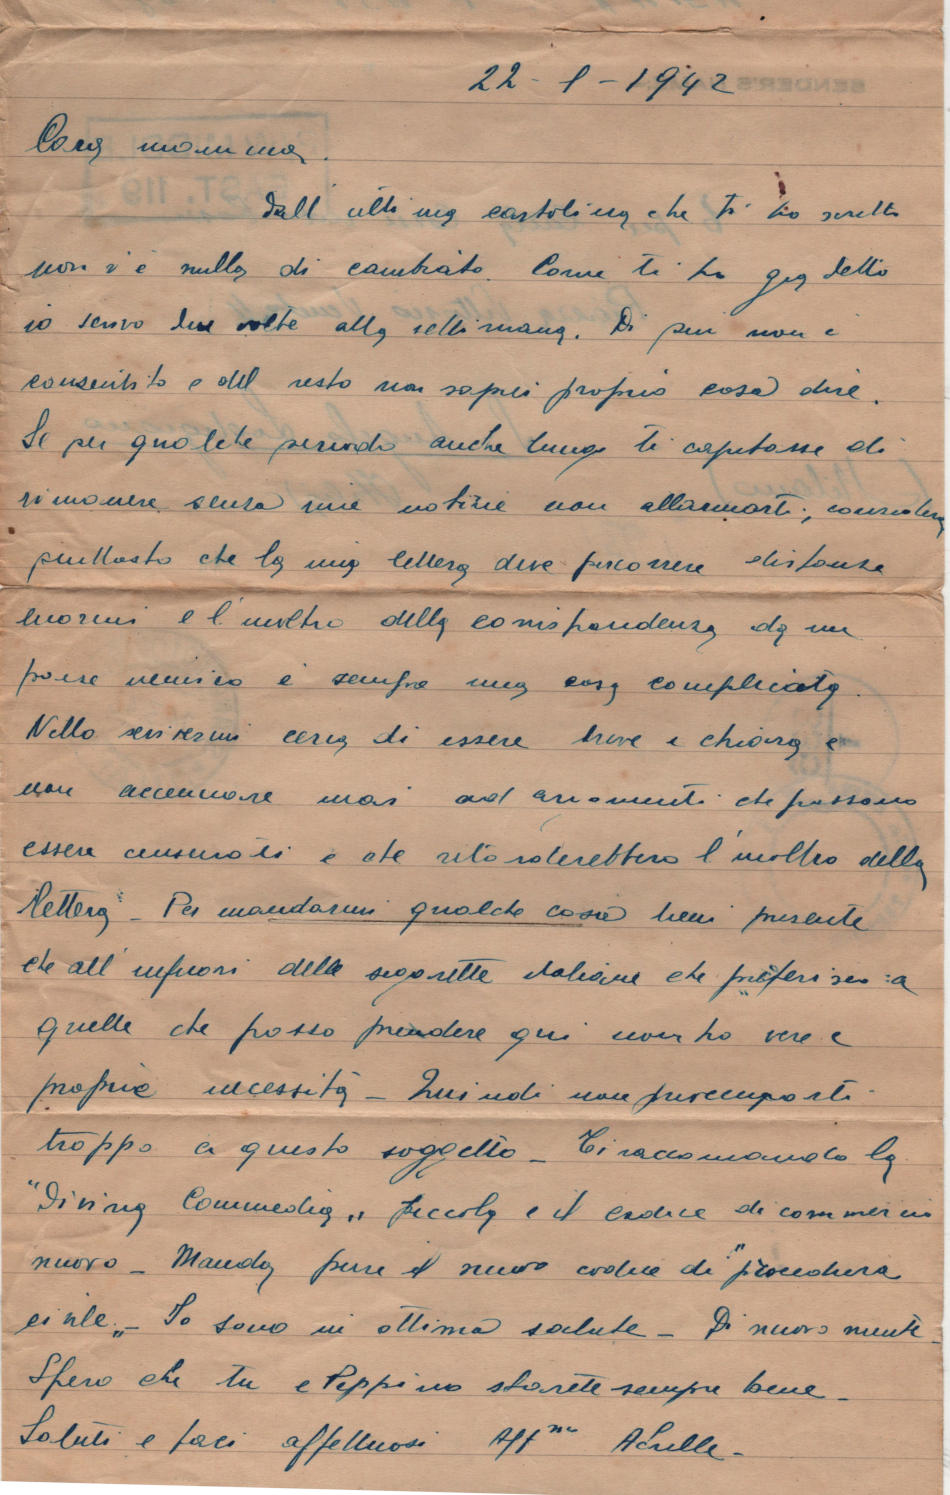 22-1-1942
Cara mamma.
dall'ultima cartolina che ti ho scritto
non vi è nulla di cambiato. Come ti ho già detto
io scrivo due volte alla settimana. Di più non è
consentito e del resto non saprei proprio cosa dire.
Se per qualche periodo anche lungo ti capitasse di
rimanere senza mie notizie non allarmarti; considera
piuttosto che la mia lettera deve percorrere distanze
enormi e l'inoltro della corrispondenza da un
paese nemico è sempre una cosa complicata.
Nello scrivermi cerca di essere breve e chiara e
non accennare mai ad argomenti che possano
essere censurati e che ritarderebbero l'inoltro della
lettera - Per mandarmi qualche cosa tieni presente
che all'infuori delle sigarette italiane che preferisco a
quelle che posso prendere qui non ho vere e
proprie necessità - Quindi non preoccuparti
troppo a questo soggetto - Ti raccomando la
"Divina Commedia" piccola e il codice di commercio
nuovo - Manda pure il nuovo codice di "procedura
civile" - Io sono in ottima salute - Di nuovo niente
Spero che tu e Peppino starete sempre bene -
Saluti e baci affettuosi Aff.mo Achille -
SENDER'S
EAST. 119